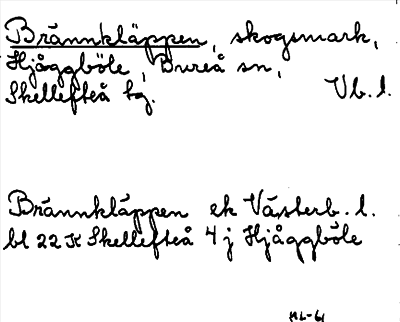 Brännkläppen, skogsmark,
Hjåggböle, Bureå sn,
Skellefteå tg. Vb. l.
Brännkläppen ek Västerb. l.
bl 22 K Skellefteå 4 j Hjåggböle
ML-61